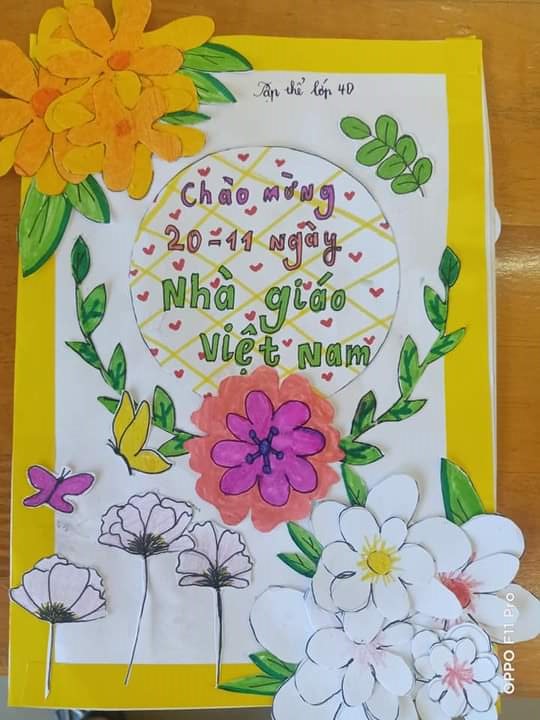 Tập thể lớp 4D
Chào mừng
20-11 ngày
Nhà giáo
Việt Nam
OPPO F11 Pro